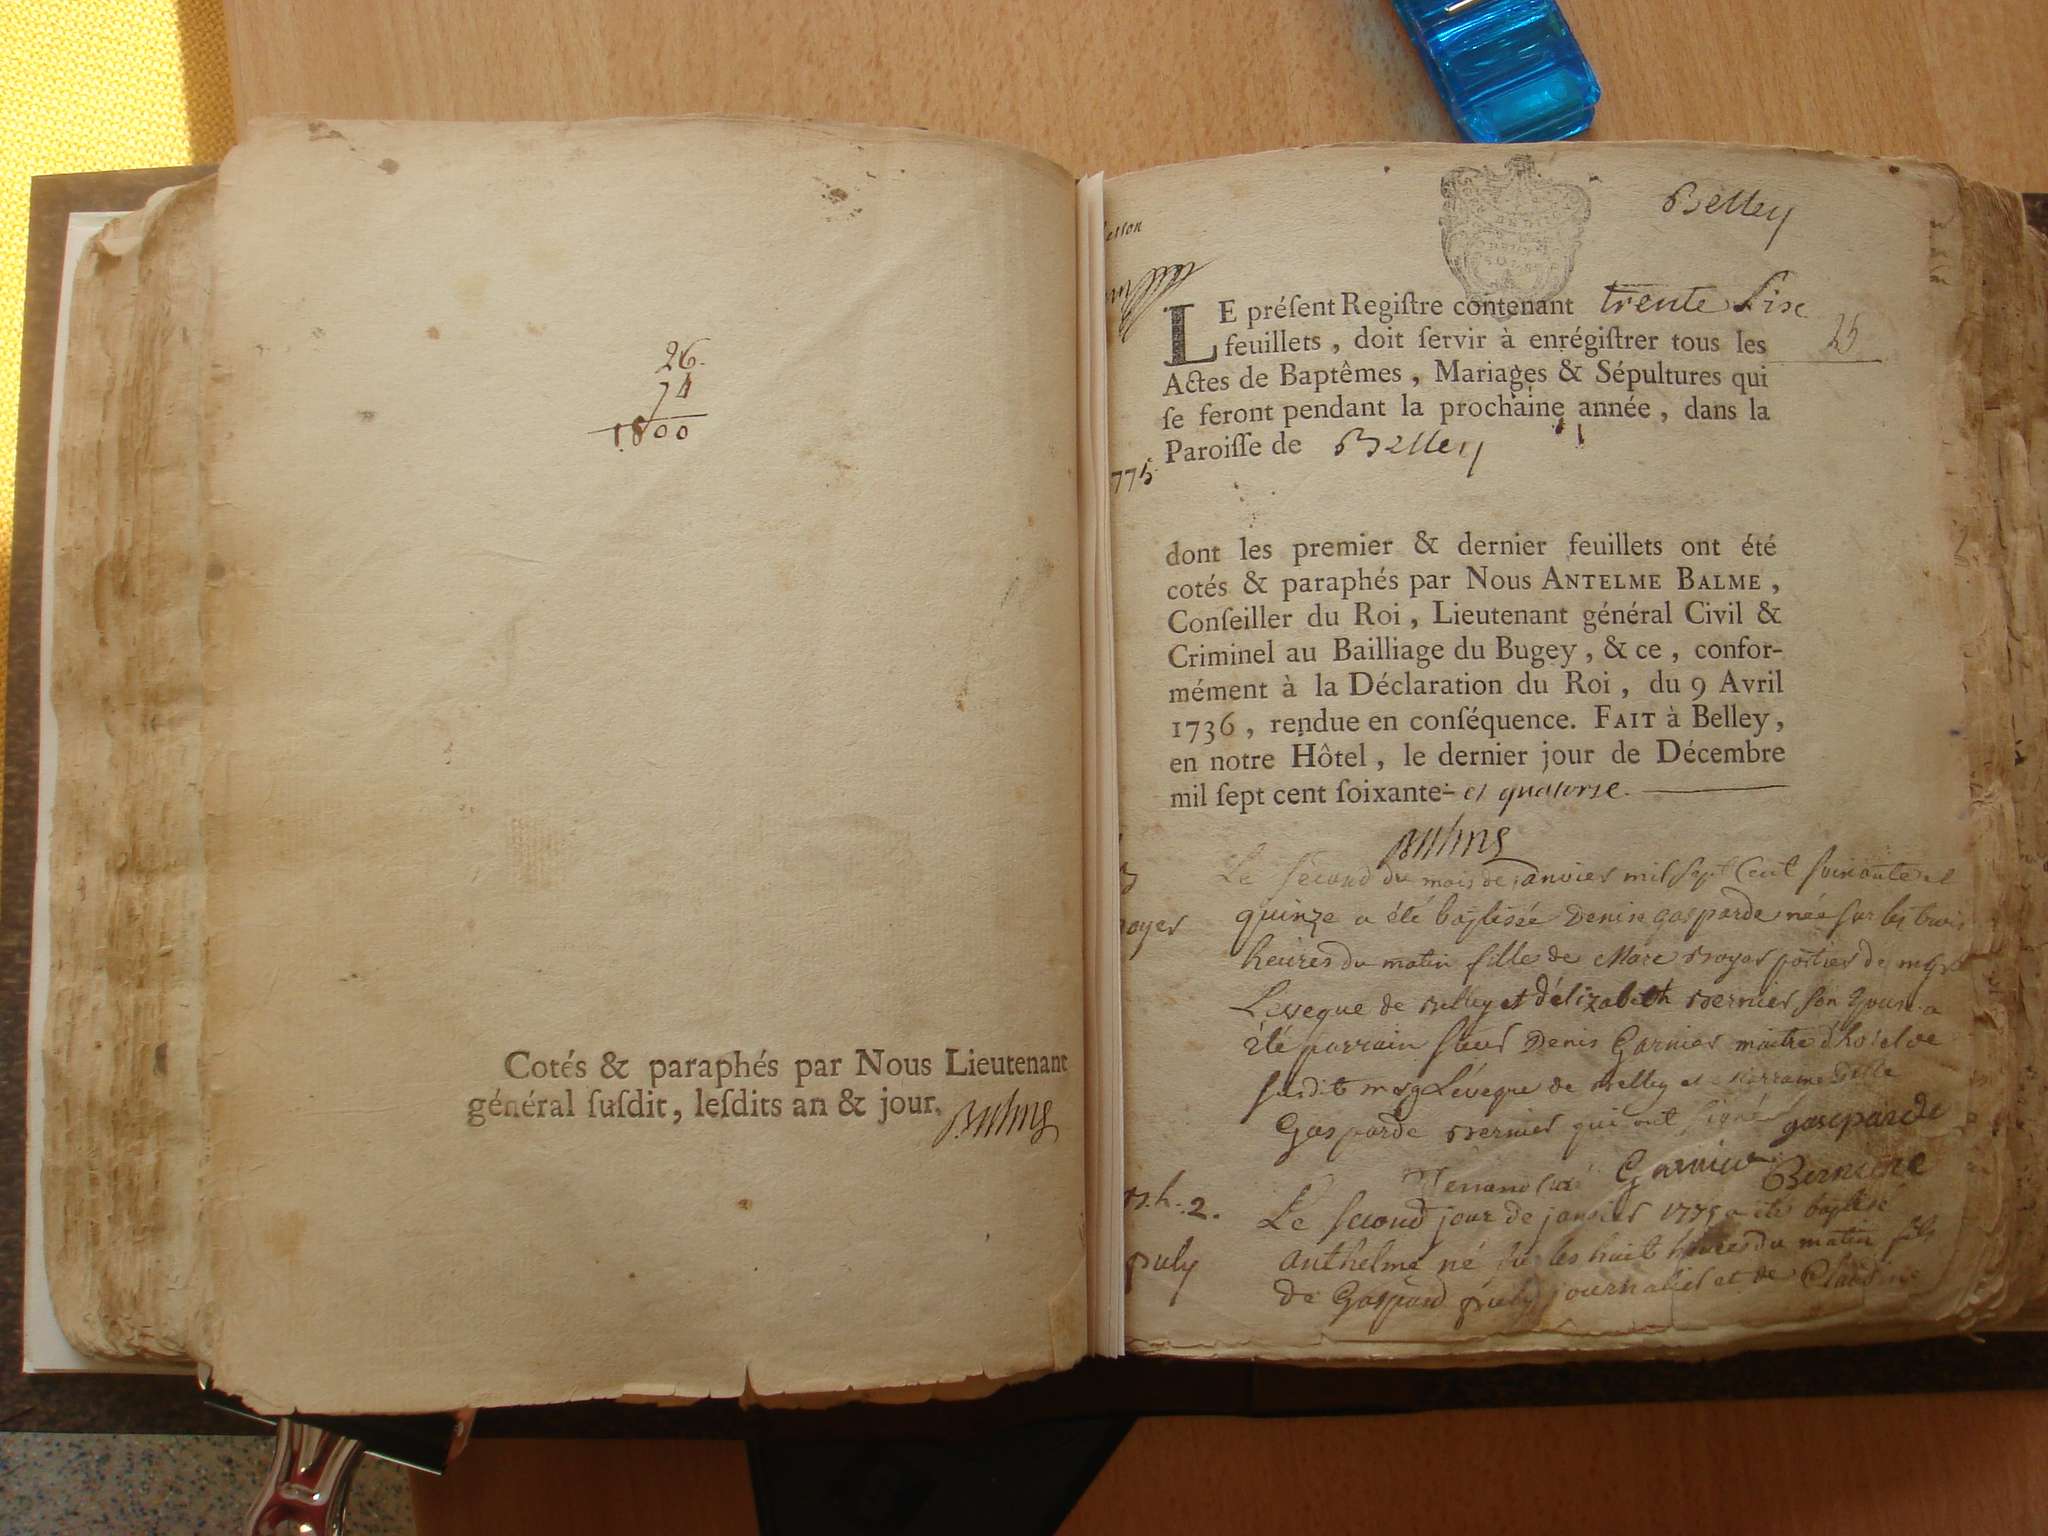 26.
74
1800
Cotés & paraphés par Nous Lieutenant
général ſuſdit, leſdits an & jour.
Belley
LE préſent Regiſtre contenant trente ſix
feuillets, doit ſervir à enrégiſtrer tous les
Actes de Baptêmes, Mariages & Sépultures qui
ſe feront pendant la prochaine année, dans la
Paroiſſe de Belley
775.
dont les premier & dernier feuillets ont été
cotés & paraphés par Nous ANTELME BALME,
Conſeiller du Roi, Lieutenant général Civil &
Criminel au Bailliage du Bugey, & ce, confor-
mément à la Déclaration du Roi, du 9 Avril
1736, rendue en conſéquence. FAIT à Belley,
en notre Hôtel, le dernier jour de Décembre
mil ſept cent ſoixante- et quatorse.
Le second du mois de janvier mil sept Cent soixante et
quinze a été baptisée Denise gasparde née sur les trois
heures du matin fille de Marc royer portier de mgr
L'eveque de Belley et d'élizabeth Bernier son
été parrain sieur Denis Garnier maitre d'hotel de
susdit msg Léveque de Belley et Marraine Delle
Gasparde Bernier qui ont signé gasparde
Garnier Bernier
h. 2. Le second jour de janvier 1775 a été baptisé
puly anthelme né sur les huit heures du matin fils
de Gaspard puly journalier et de Claudine